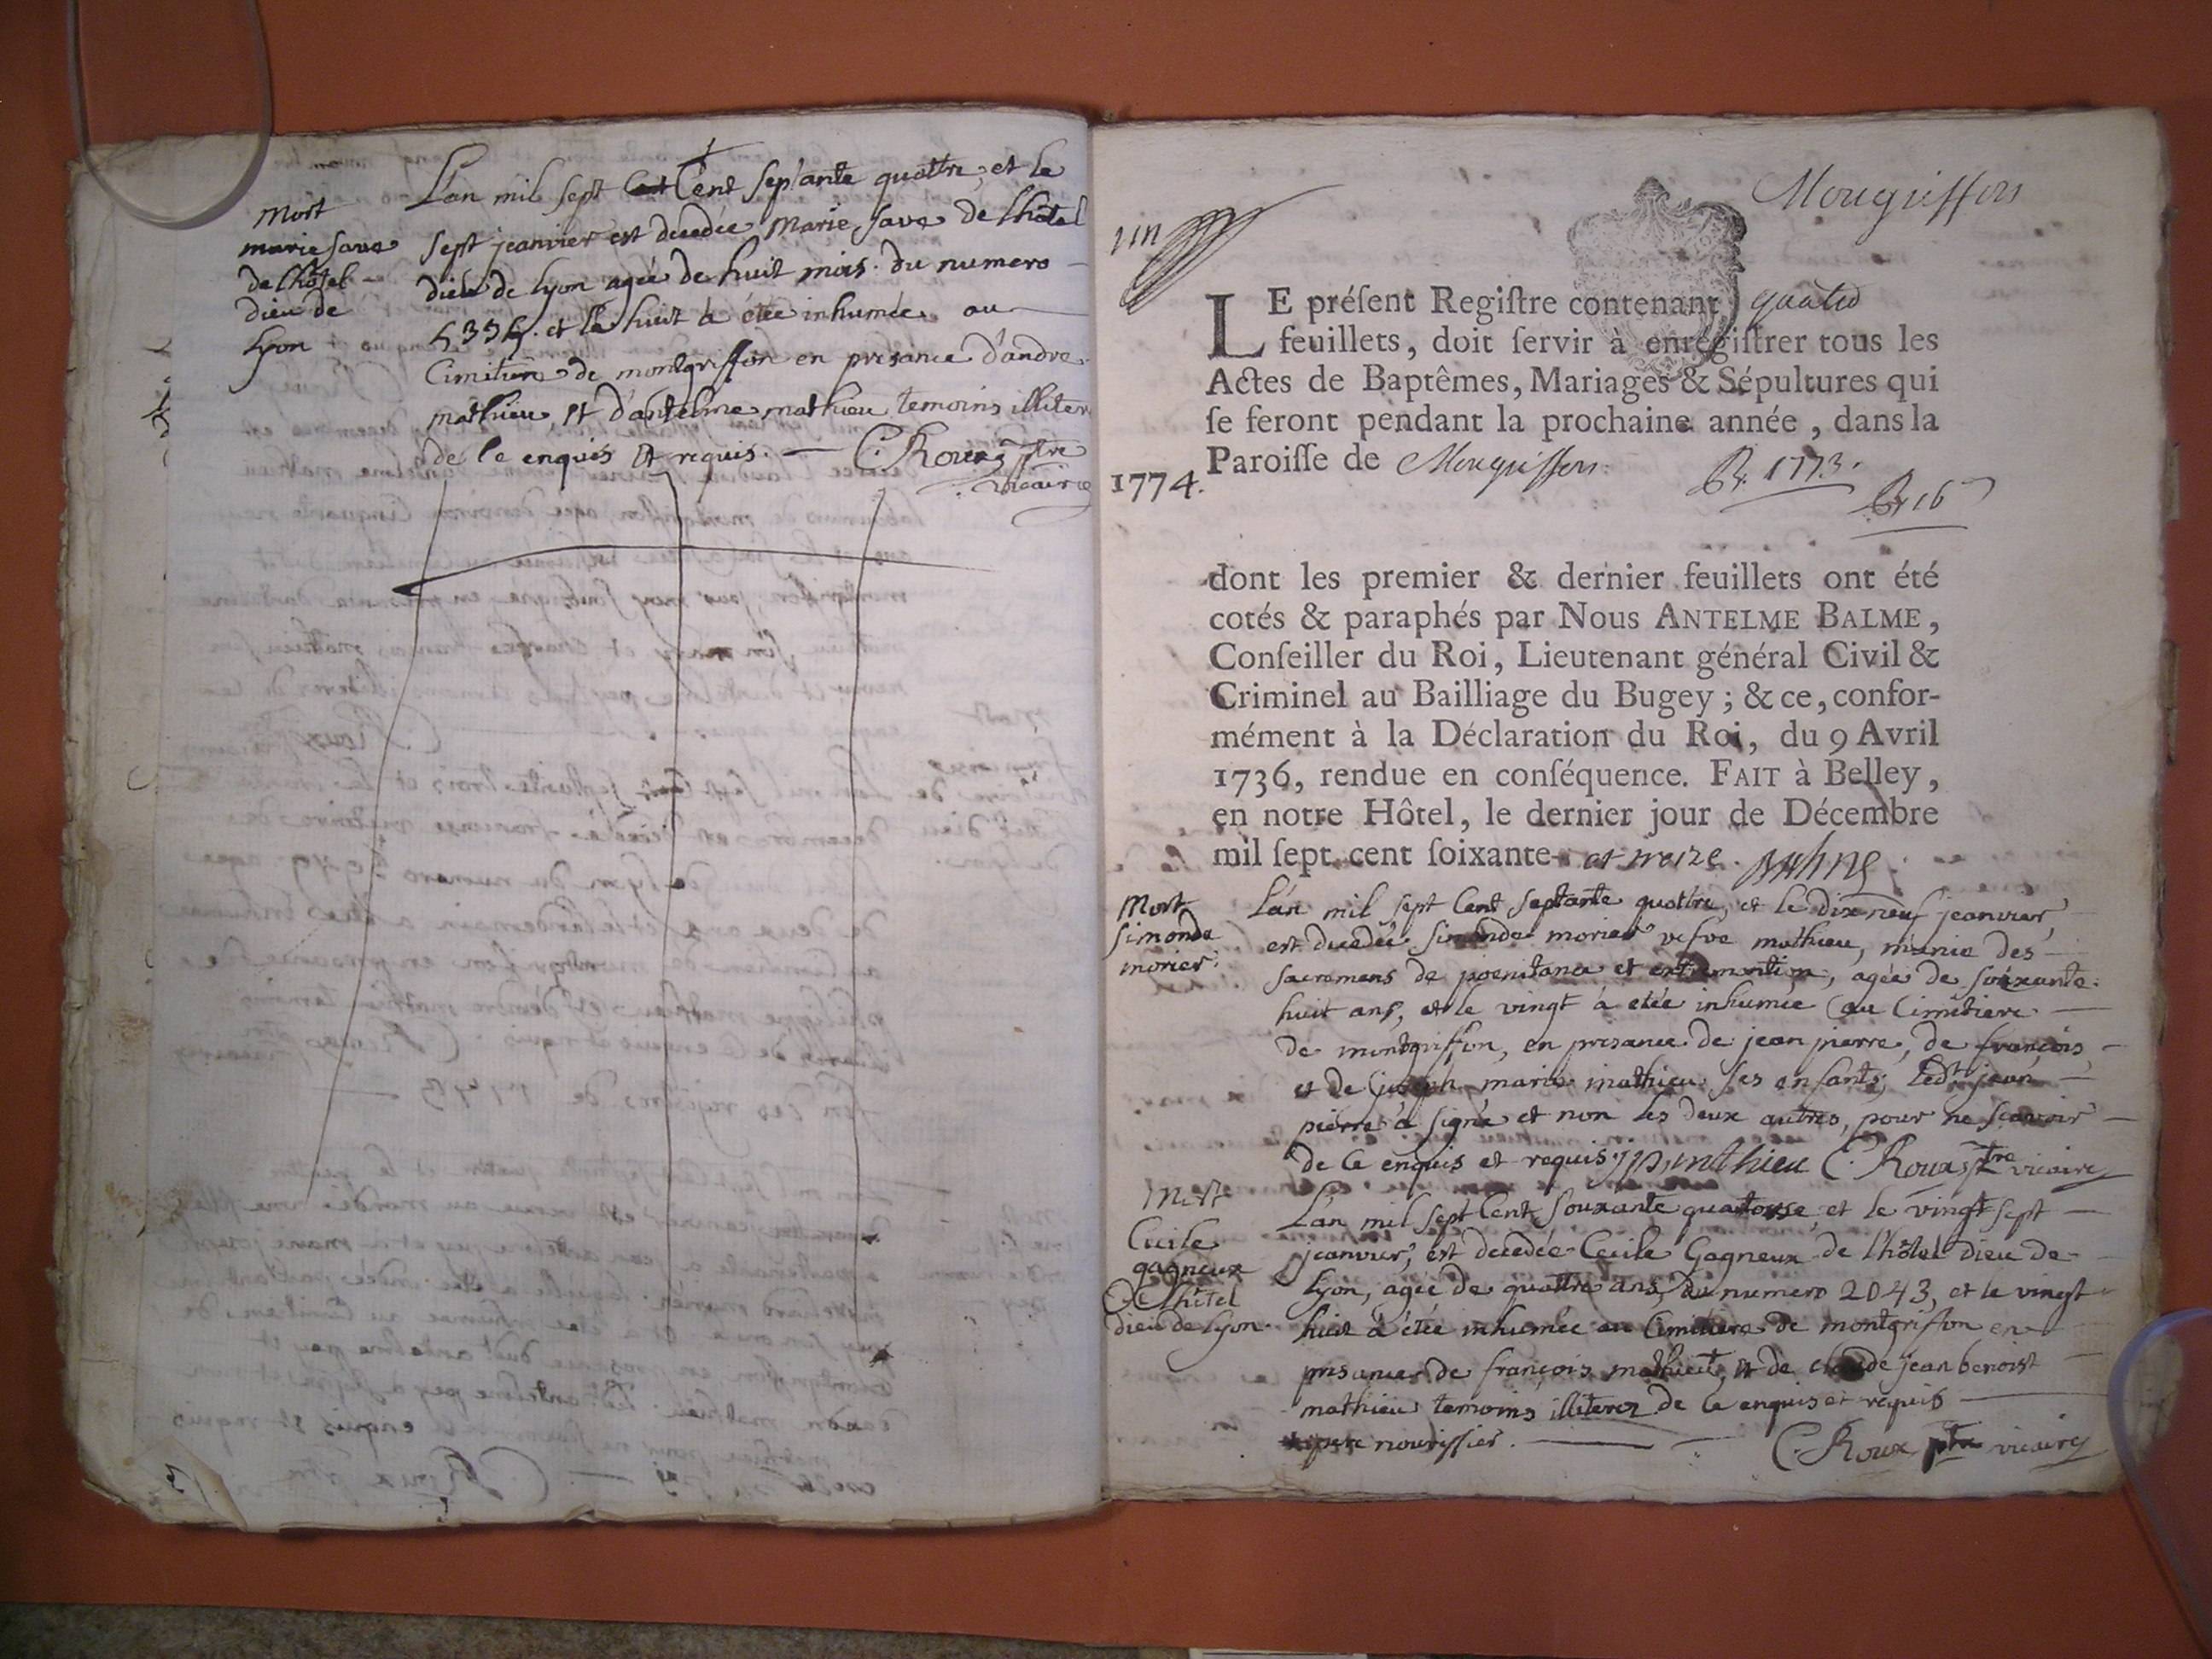 mort
marie save
de lhôtel
dieu de
lyon
L'an mil sept Cent septante quattre, et le
sept jeanvier est decedée Marie save de lhôtel
dieu de lyon agée de huit mois. du numero
et le huit à étée inhumée au
Cimitiere de montgriffon en presance d'andre
mathieu, et d'antelme mathieu temoins illiter
de ce enquis et requis. C. Roux ptre
vicaire
Mongriffon
LE préſent Regiſtre contenant quatre
feuillets, doit ſervir à enregiſtrer tous les
Actes de Baptêmes, Mariages & Sépultures qui
ſe feront pendant la prochaine année, dans la
Paroiſſe de Mongriffon.
1774.
R. 1773.
R 16
dont les premier & dernier feuillets ont été
cotés & paraphés par Nous ANTELME BALME,
Conſeiller du Roi, Lieutenant général Civil &
Criminel au Bailliage du Bugey ; & ce, confor-
mément à la Déclaration du Roi, du 9 Avril
1736, rendue en conſéquence. FAIT à Belley,
en notre Hôtel, le dernier jour de Décembre
mil ſept cent ſoixante et treize.
Mort
simonde
morier.
L'an mil sept Cent septante quattre, et le dix neuf jeanvier,
est decedée simonde morier vefve mathieu, munie des
sacremens de poenitance et extremontion, agée de soixante
huit ans, et le vingt à etée inhumée au Cimitiere
de montgriffon, en presance de jean pierre, de françois
et de joseph marie mathieu ses enfants; ledt jean
pierre à signé et non les deux autres, pour ne sçavoir
de ce enquis et requis. jp mathieu C. Roux ptre vicaire
Mort
Cecile
gagneux
de lhôtel
dieu de lyon.
L'an mil sept Cent soixante quatorse, et le vingt sept
jeanvier, est decedée Cecile Gagneux de l'hôtel dieu de
lyon, agée de quattre ans, du numero 2043, et le vingt
huit à étée inhumée au Cimitiere de montgriffon en
presance de françois mathieu, et de claude jean benoist
mathieu temoins illiterez de ce enquis et requis
pere nourissier. C. Roux ptre vicaire